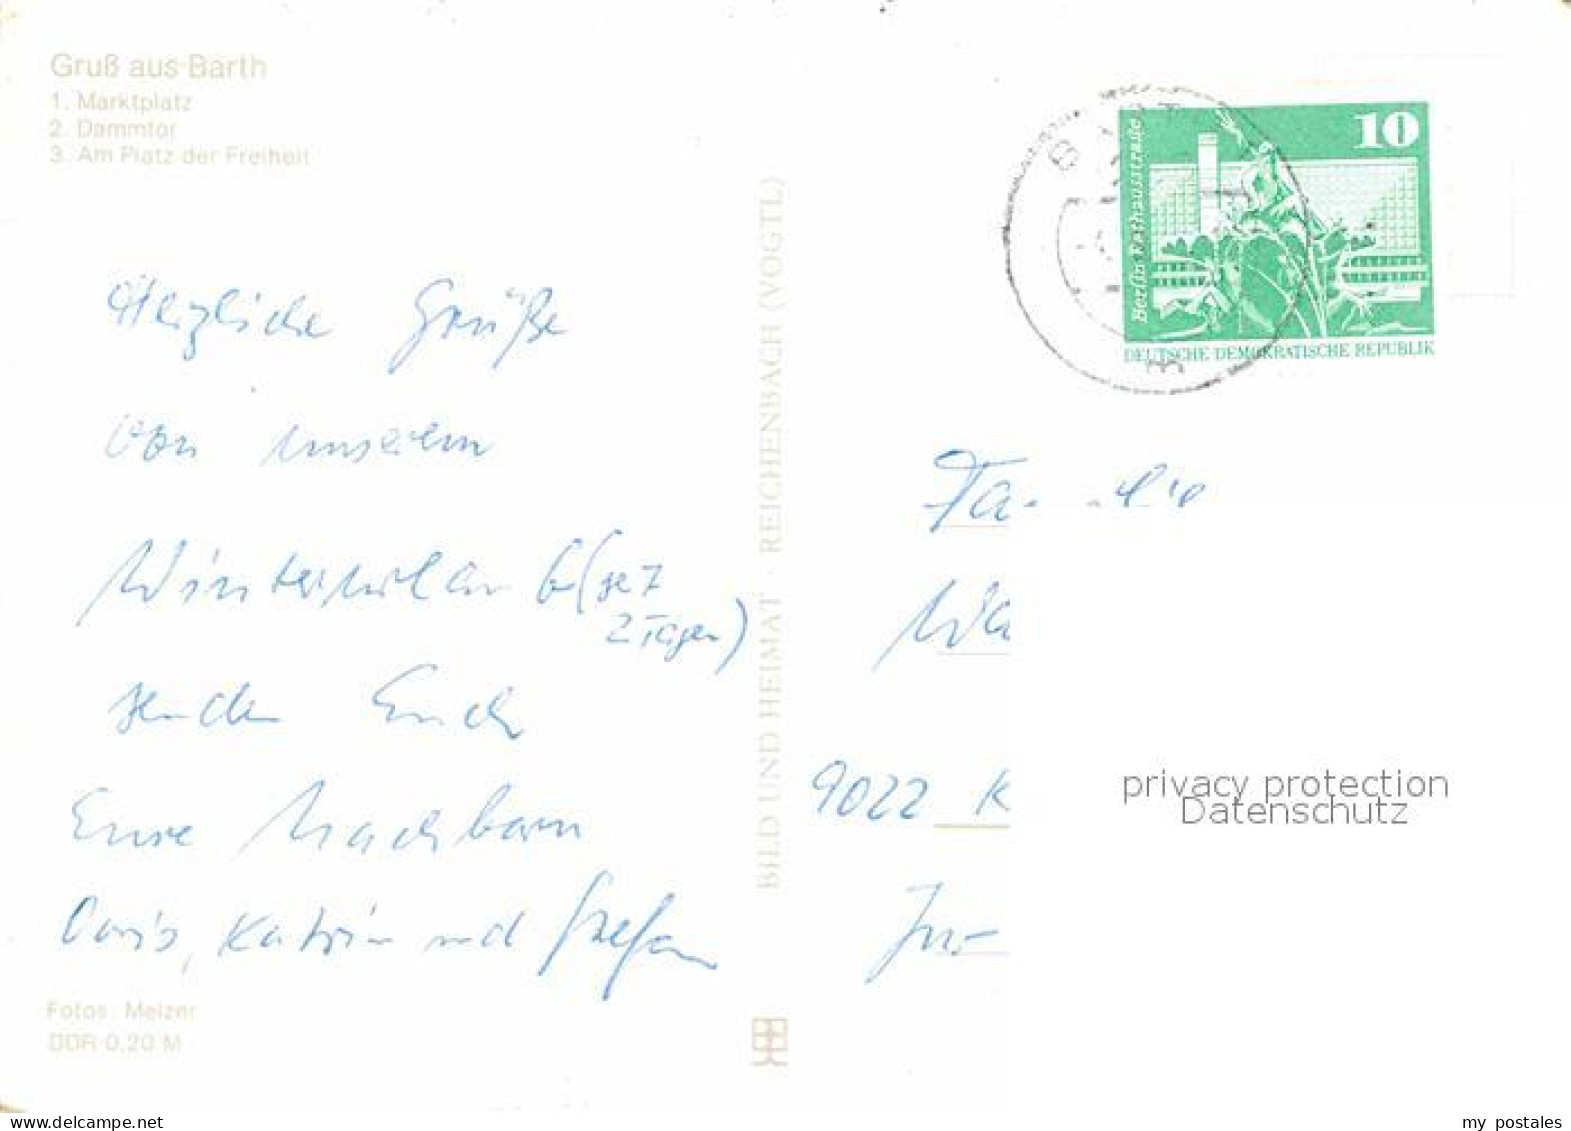 Gruß aus Barth
1. Marktplatz
2. Dammtor
3. Am Platz der Freiheit
Herzliche Grüße
von unserem
Winterurlaub (seit
2 Tagen)
senden Euch
Eure Nachbarn
Doris, Katrin und Stefan
Fotos: Melzer
DDR 0,20 M
BILD UND HEIMAT · REICHENBACH (VOGTL)
10
Berlin Rathausstraße
DEUTSCHE DEMOKRATISCHE REPUBLIK
Familie
9022 K
privacy protection
Datenschutz
www.delcampe.net
my_postales